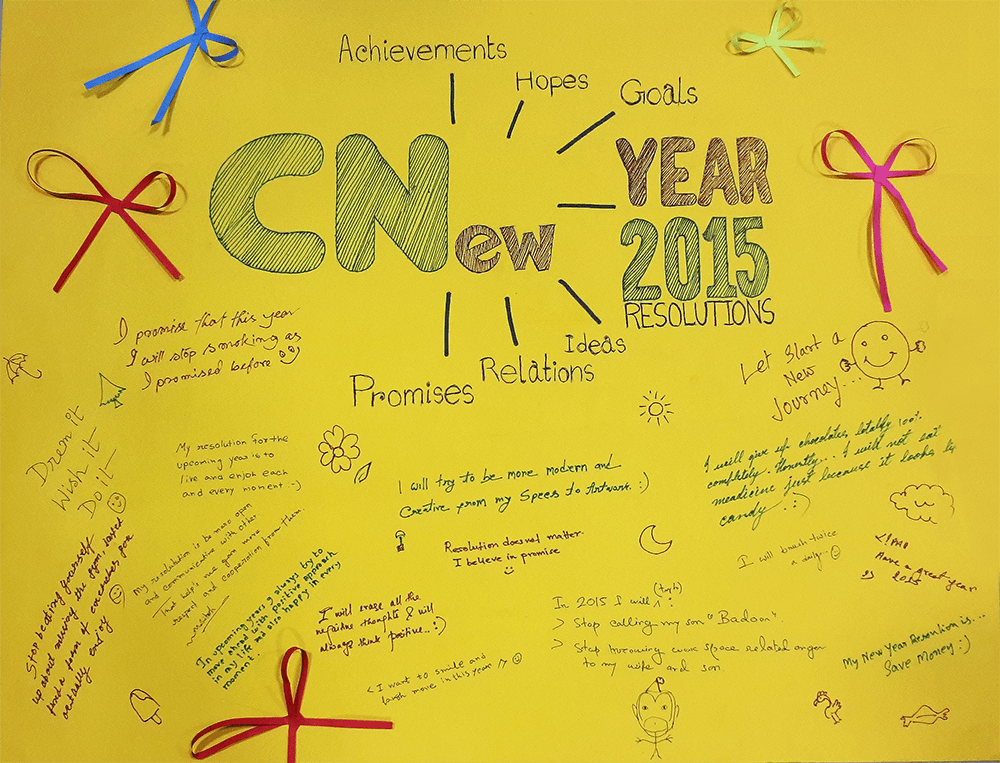 Achievements
Hopes
Goals
CNew
YEAR
2015
RESOLUTIONS
Promises
Relations
Ideas
I promise that this year
I will stop smoking as
I promised before
Let Start a
New
Journey...
Drem it
Wish it
Do it
My resolution for the
upcoming year is to
live and enjoy each
and every moment :-)
I will try to be more modern and
Creative from my Specs to Artwork. :)
I will give up chocolates, totally 100%
completely. Honestly... I will not eat
meadicine just because it looks like
candy. :)
My resolution is be more open
and communicative with other
That help's me gain more
respect and cooperation from them.
Resolution does not matter.
I believe in promise
I will brush twice
a day.
Have a great year
2015
Stop beating yourself
up about missing the gym, instead
find a form of exercise you
actually enjoy
In upcoming years I always try to
move ahead with positive approach
in my life and also happy in every
moment.
I will erase all the
negative thoughts & will
always think positive...:)
< I want to smile and
laugh more in this year !?
In 2015 I will (try to) :
> Stop calling my son "Badoon"
> Stop throwing work space related anger
to my wife and son.
My New Year Resontion is...
Save Money :)